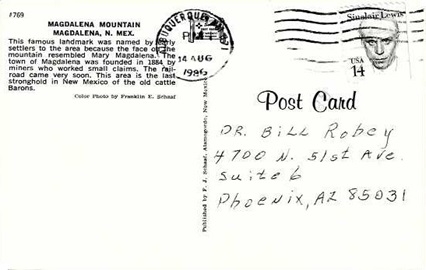 #769
MAGDALENA MOUNTAIN
MAGDALENA, N. MEX.
This famous landmark was named by early
settlers to the area because the face on the
mountain resembled Mary Magdalena. The
town of Magdalena was founded in 1884 by
miners who worked small claims. The rail-
road came very soon. This area is the last
stronghold in New Mexico of the old cattle
Barons.
Color Photo by Franklin E. Schaaf
Published by F. J. Schaaf, Alamogordo, New Mexico
ALBUQUERQUE, NM
PM
14 AUG
1986
Sinclair Lewis
USA
14
Post Card
DR. Bill Robey
4700 N. 51st Ave.
Suite 6
Phoenix, AZ 85031